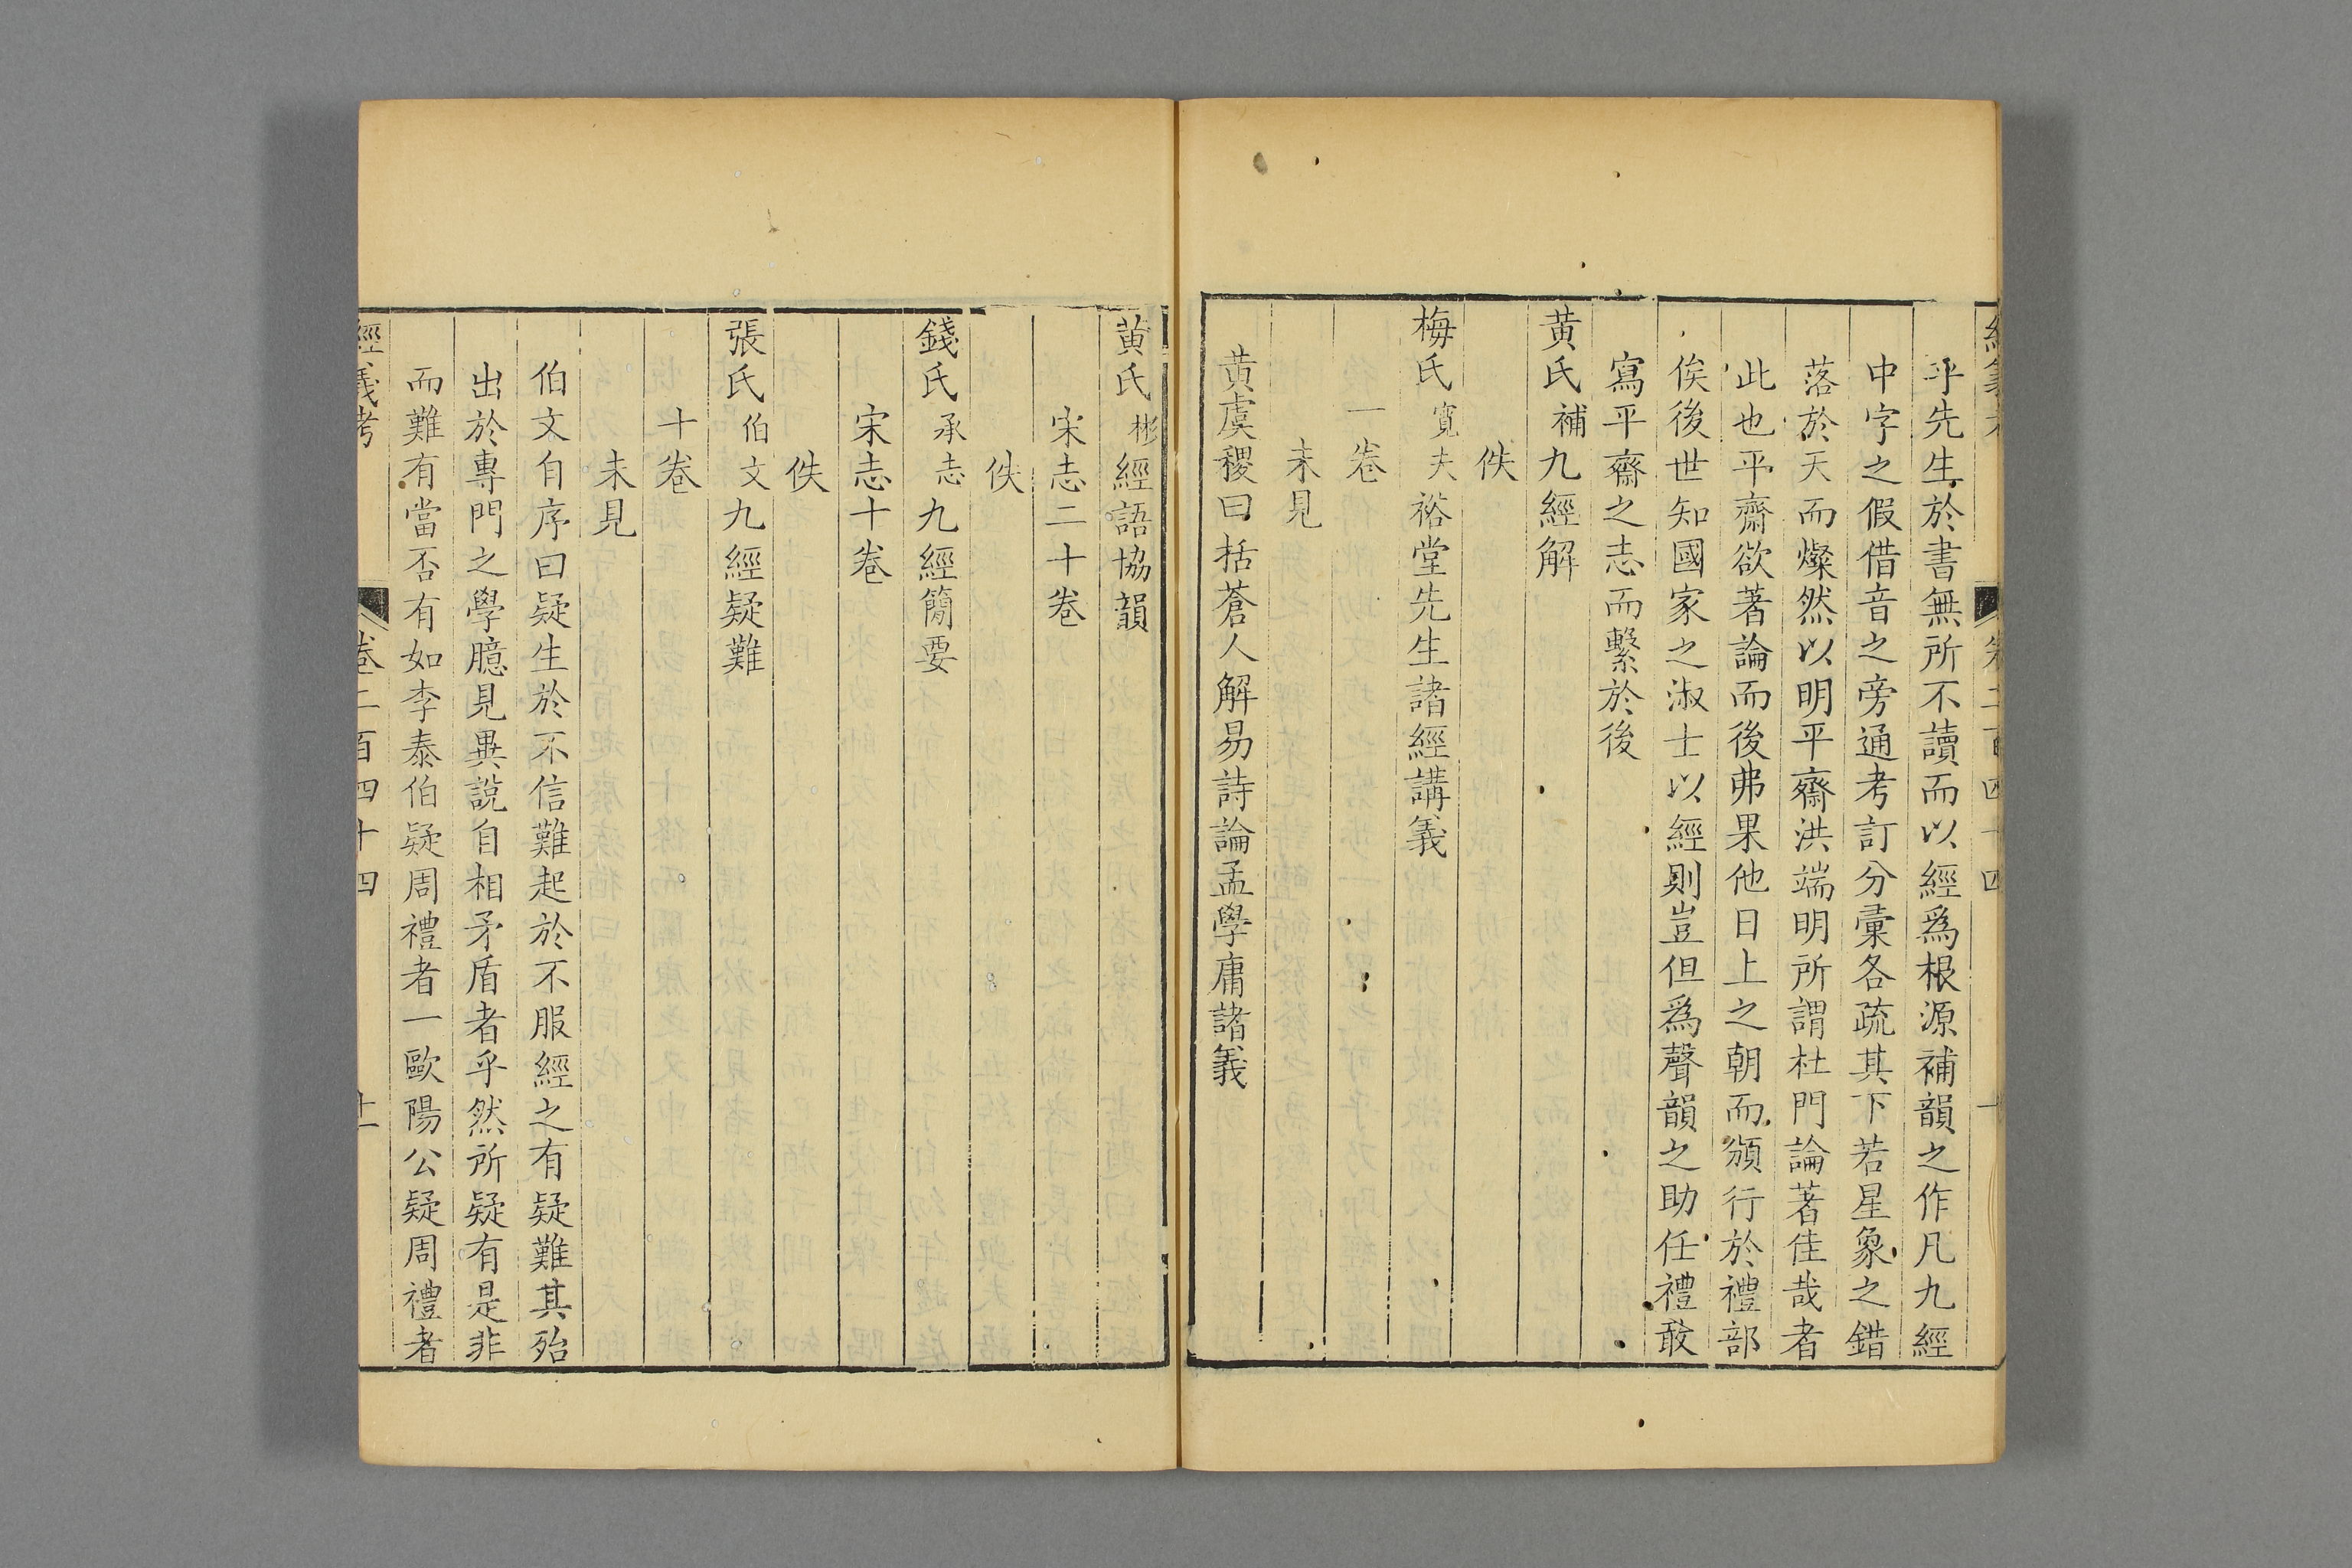 乎先生於書無所不讀而以經爲根源補韻之作凡九經
中字之假借音之旁通考訂分彙各疏其下若星象之錯
落於天而燦然以明平齋洪端明所謂杜門論著佳哉者
此也平齋欲著論而後弗果他日上之朝而頒行於禮部
俟後世知國家之淑士以經則豈但爲聲韻之助任禮敢
寫平齋之志而繫於後
黄氏補九經解
佚
梅氏寬夫裕堂先生諸經講義
一卷
未見
黄虞稷曰括蒼人解易詩論孟學庸諸義
黄氏彬經語協韻
宋志二十卷
佚
錢氏承志九經簡要
宋志十卷
佚
張氏伯文九經疑難
十卷
未見
伯文自序曰疑生於不信難起於不服經之有疑難其殆
出於專門之學臆見異說自相矛盾者乎然所疑有是非
而難有當否有如李泰伯疑周禮者一歐陽公疑周禮者
經義考 卷二百四十四 十一